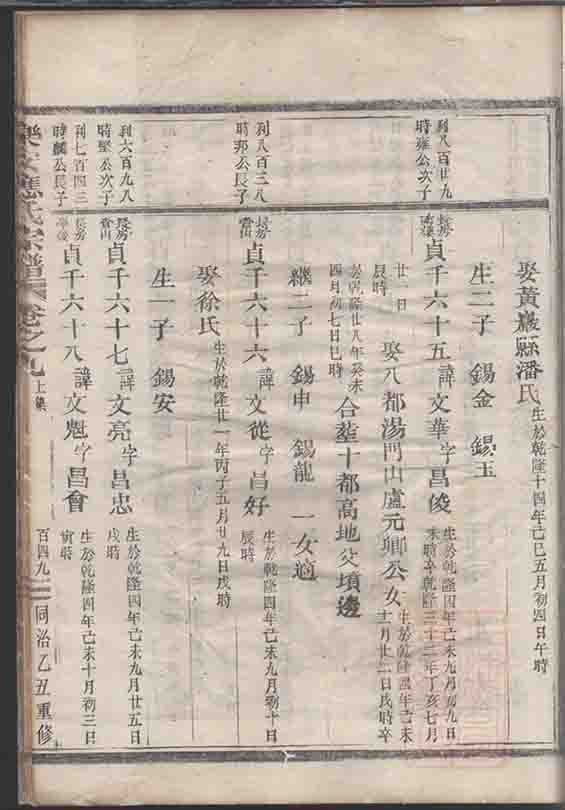 娶黃巖縣潘氏 生於乾隆十四年己巳五月初四日午時
生二子 錫金 錫玉
利八百廿九
時雍公次子
貞千六十五 諱文華字昌俊 生於乾隆四年己未九月初九日
未時卒乾隆三十二年丁亥七月
廿一日
辰時
娶八都湯門山盧元卿公女 生於乾隆四年己未
十一月廿二日戌時卒
於乾隆廿八年癸未
四月初七日巳時
合塟十都高地父墳邊
繼二子 錫申 錫龍 一女適
利八百三八
時邦公長子
長房
貞千六十六 諱文從字昌好 生於乾隆四年己未九月初十日
辰時
娶徐氏 生於乾隆廿一年丙子五月廿九日戌時
生一子 錫安
利六百九八
時堅公次子
長房
貞千六十七 諱文亮字昌忠 生於乾隆四年己未九月廿五日
戌時
利七百四三
時麟公長子
長房
貞千六十八 諱文魁字昌會 生於乾隆四年己未十月初三日
寅時
應氏宗譜 卷之九 上集 百四九 同治乙丑重修